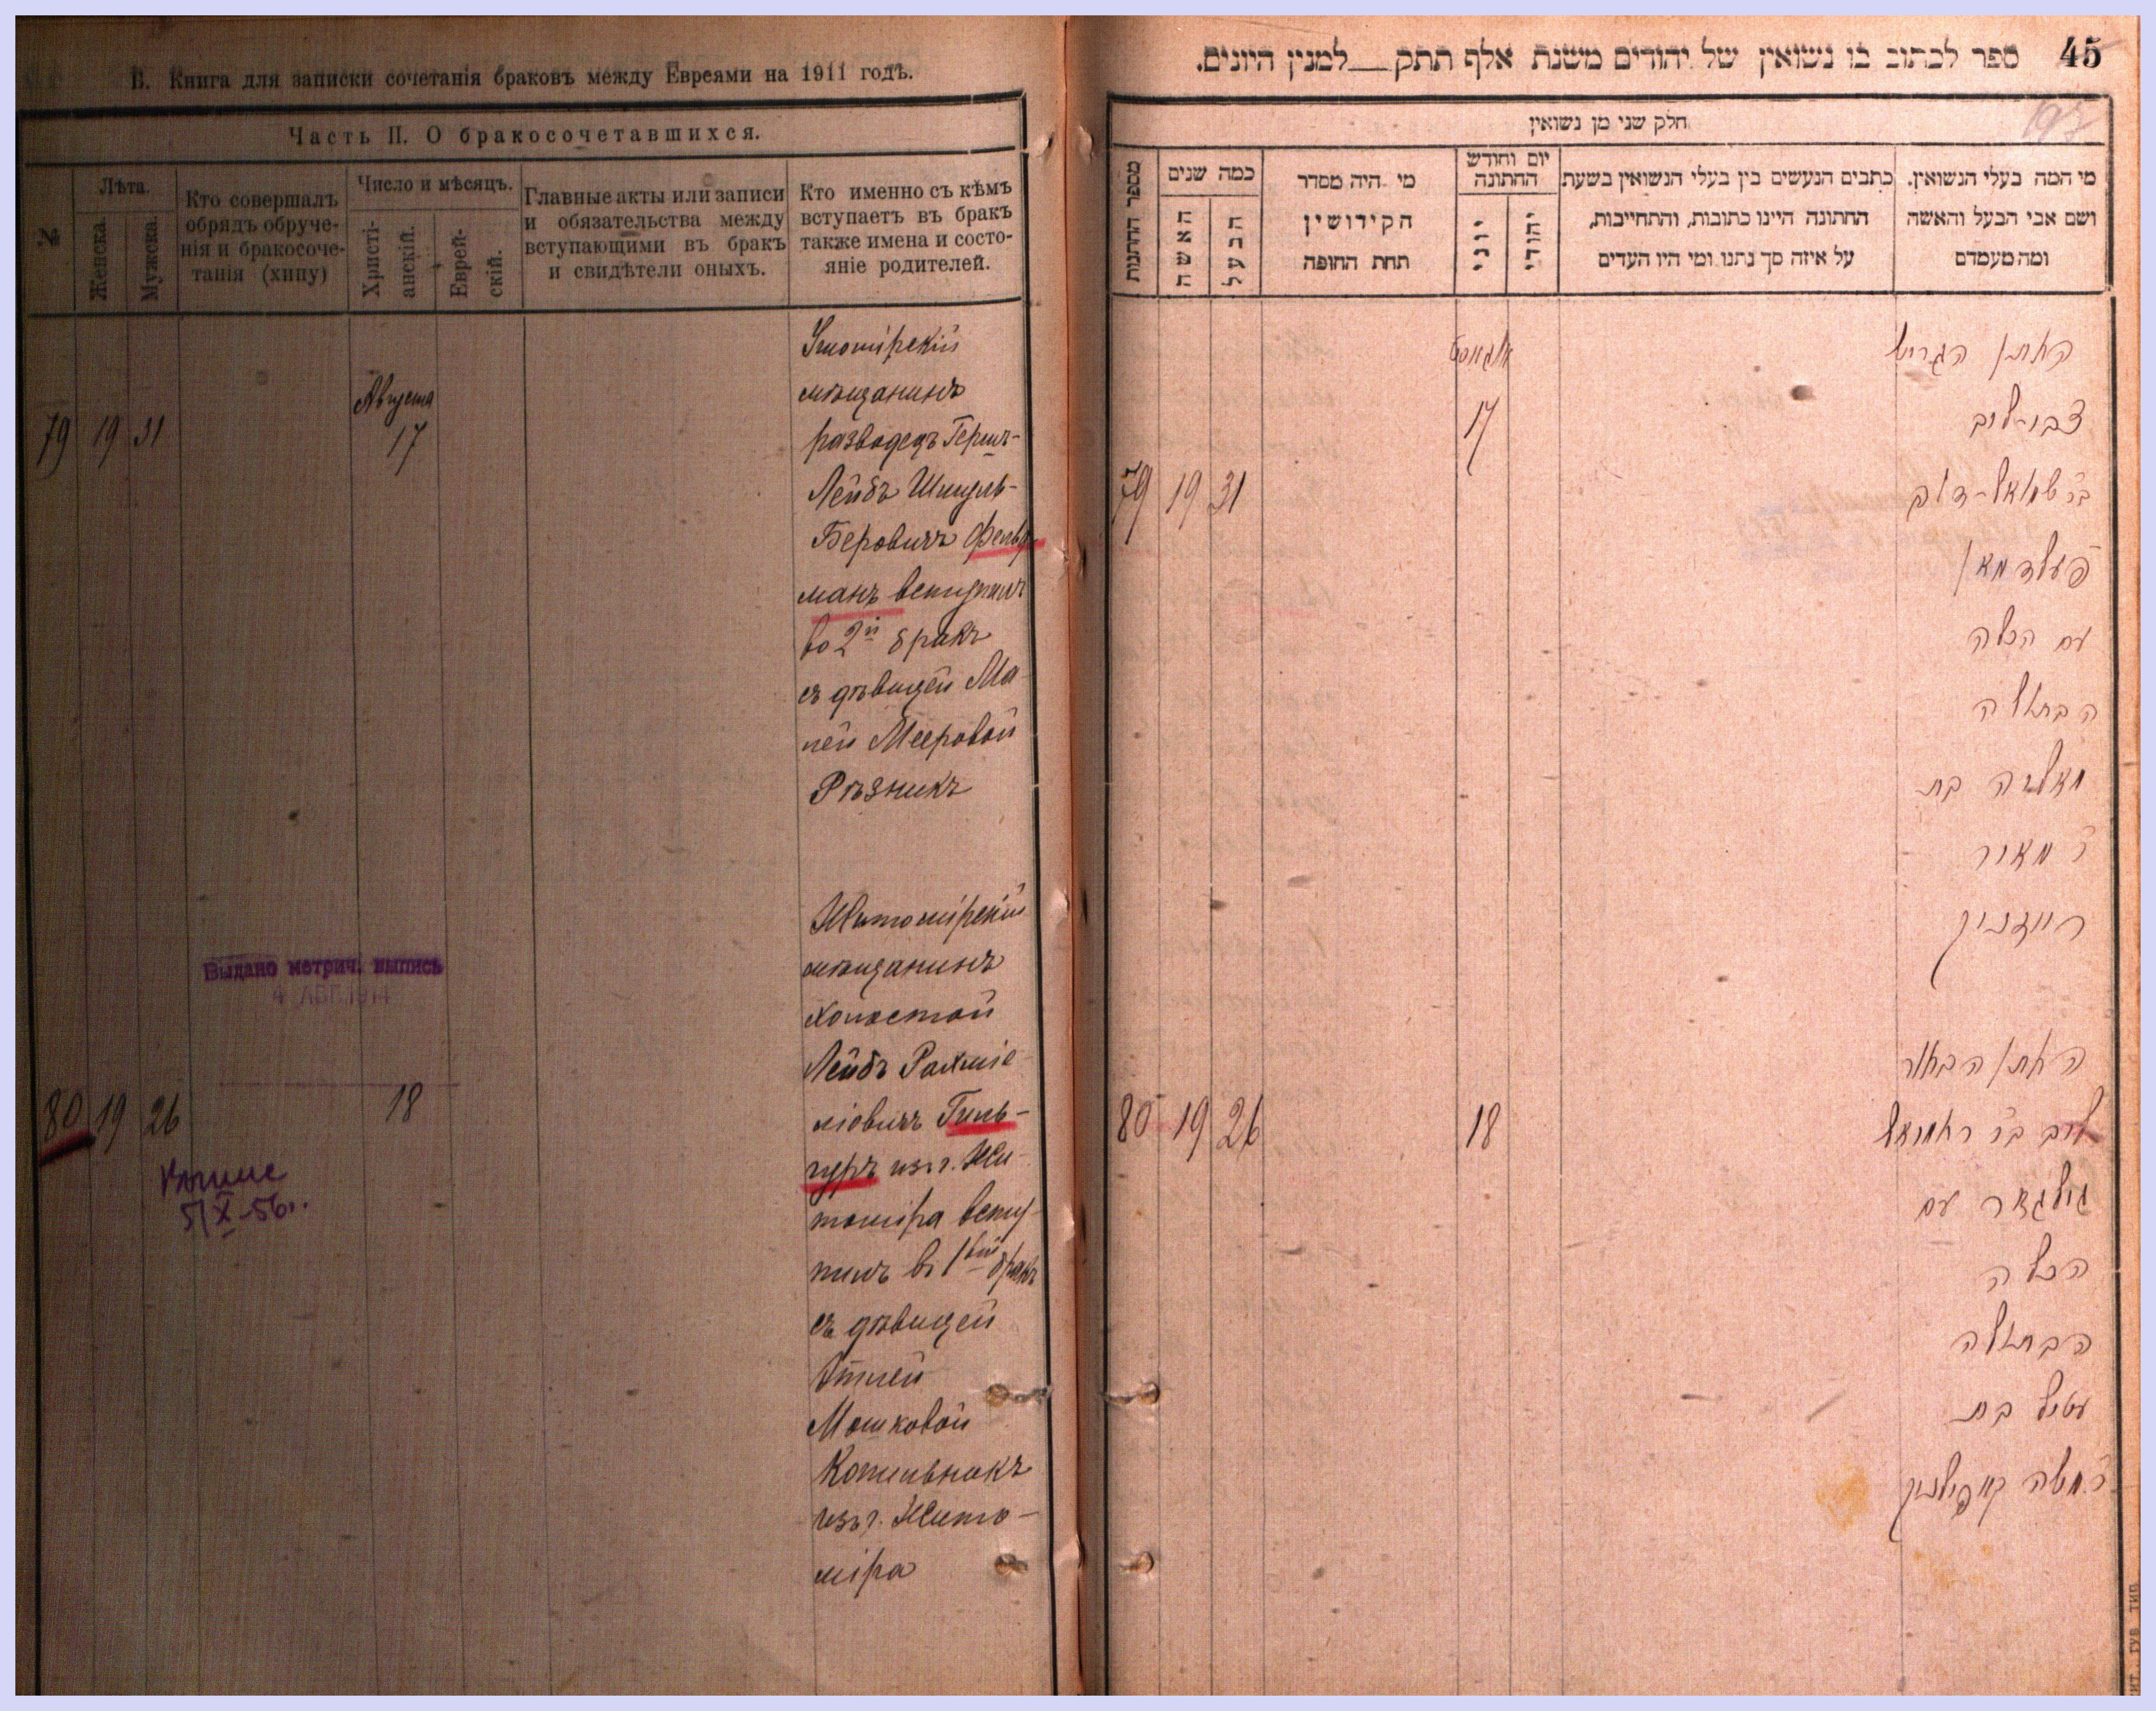 В. Книга для записки сочетанія браковъ между Евреями на 1911 годъ.
Часть II. О бракосочетавшихся.
№
Лѣта.
Женска.
Мужеска.
Кто совершалъ
обрядъ обруче-
нія и бракосоче-
танія (хипу)
Число и мѣсяцъ.
Христі-
анскій.
Еврей-
скій.
Главные акты или записи
и обязательства между
вступающими въ бракъ
и свидѣтели оныхъ.
Кто именно съ кѣмъ
вступаетъ въ бракъ
также имена и состо-
яніе родителей.
79 19 31
Августа
17
мѣщанинъ
разводецъ Гершъ-
Лейбъ Шмуль-
Беровичъ Фельд
манъ вступилъ
во 2й бракъ
съ дѣвицей Ма
ней Мееровой
Рѣзникъ
Выдано метрич. выпись
4 АВГ. 1914
80 19 26
18
5/X-56г.
Житомірскій
мѣщанинъ
холостой
Лейбъ Рахміе
ліовичъ Гиль-
гуръ изъ г. Жи-
томіра всту-
пилъ въ 1вый бракъ
съ дѣвицей
Этлей
Мошковой
Копильникъ
изъ г. Жито-
міра
45
ספר לכתוב בו נשואין של יהודים משנת אלף תתק__למנין היונים.
חלק שני מן נשואין
מי המה בעלי הנשואין.
ושם אבי הבעל והאשה
ומה מעמדם
כתבים הנעשים בין בעלי הנשואין בשעת
החתונה היינו כתובות, והתחייבות,
על איזה סך נתנו ומי היו העדים
יום וחודש
החתונה
יהודי
יוני
מי היה מסדר
הקידושין
תחת החופה
כמה שנים
הבעל
האשה
מספר החתונות
79 19 31
אוגוסט
17
החתן הגרוש
צבי-ליב
בר שמואל-דוב
פעלדמאן
עם הכלה
הבתולה
מאליה בת
ר מאיר
רייזניק
80 19 26
18
החתן הבחור
ליב בר ראחמיאל
גילגור עם
הכלה
הבתולה
עטיל בת
ר משה קאפילניק